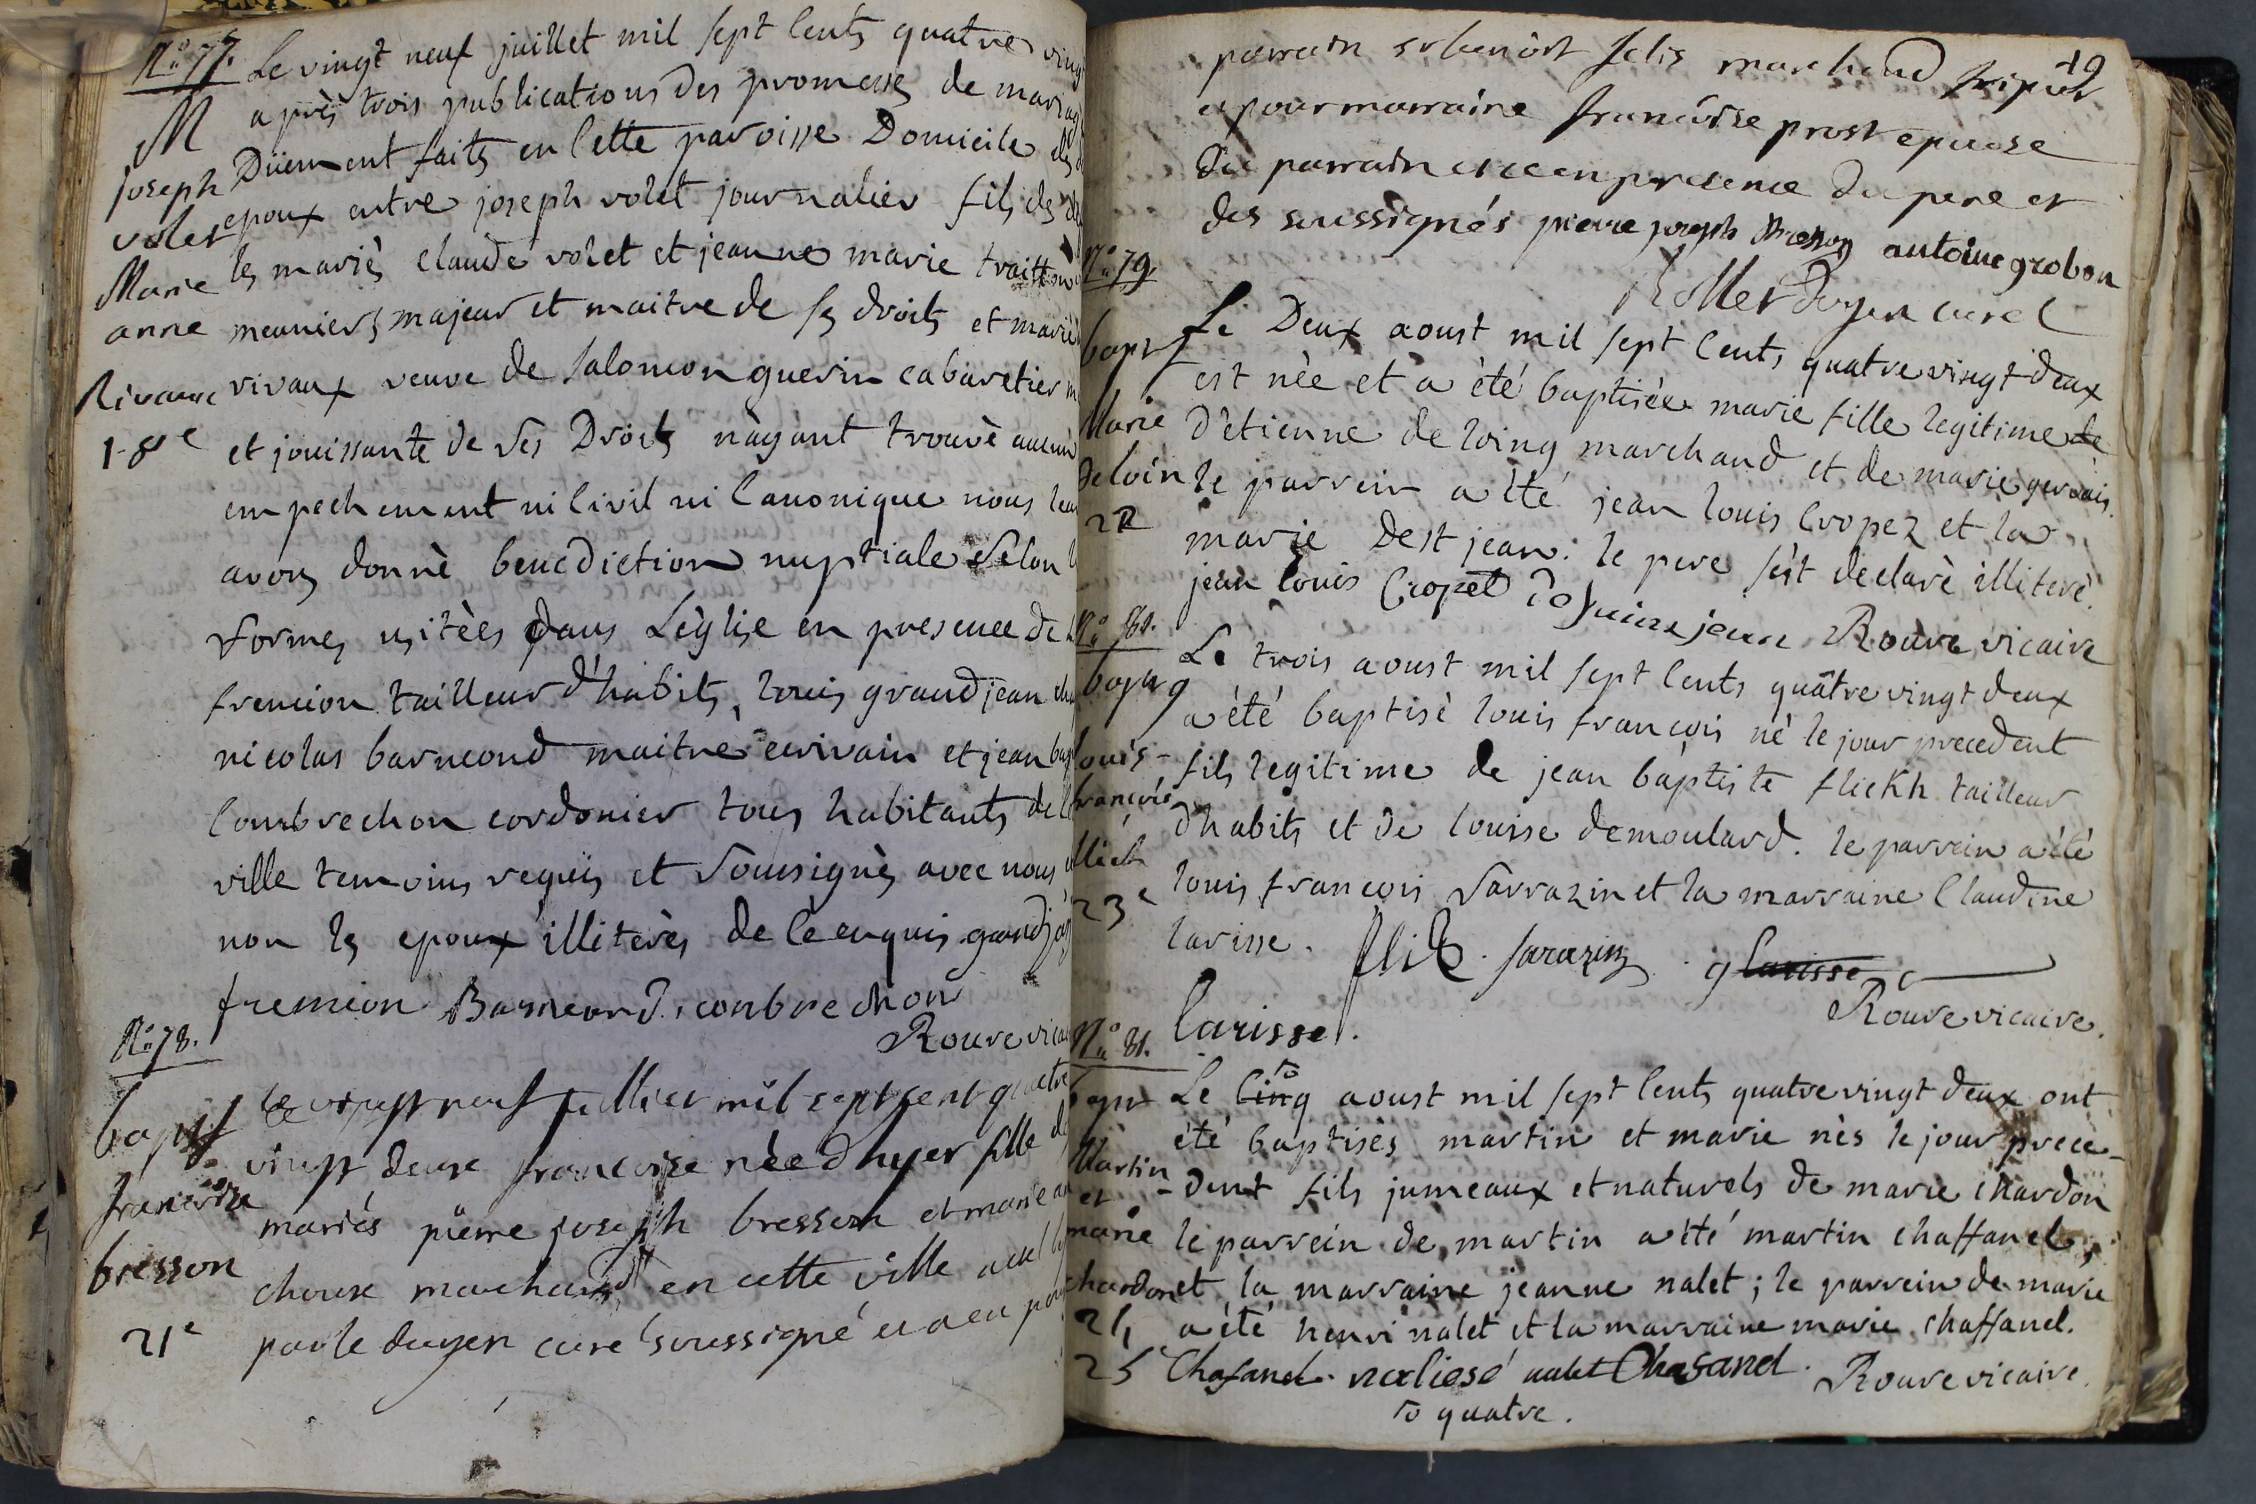 No 77.
M
joseph
volet
Marie
anne
Rivaux
18e
Le vingt neuf juillet mil sept cents quatre ving
après trois publications des promesses de mariag
Düement faits en cette paroisse Domicile des
epoux entre joseph volet journalier fils des
les mariès claude volet et jeanne marie
meuniers majeur et maitre de ses droits et marie
rivaux veuve de salomon guerin cabaretier
et jouissante de ses Droits n'ayant trouvè aucun
empechement ni civil ni canonique nous leur
avons donnè benediction nuptiale selon l
formes usitèes dans L'èglise en presence de
fremion tailleur d'habits, louis grandjean
nicolas barneond maitre ecrivain et jean bap
combrechon cordonier tous habitants de
ville temoins requis et sousignès avec nous
non les epoux illiterès de ce enquis grandj
fremion Barneond. conbrechon
Rouve vica
No 78.
bapt
francoise
bresson
21e
le vingt neuf juillet mil sept cent quatre
vingt deux francoise née d hyer fille d
mariés pierre joseph bresson et marie an
choux marchand en cette ville a ete
par le doyen curé soussigné et a eu pour
19
parrain sr benoit felis marchand fripier
et pour marraine francoise prost epouse
du parrain et ce en presence du pere et
des soussignés pierre joseph Bresson antoine grobon
Rollet doyen curé
No 79.
bapt
Marie
deloin
22
Le Deux aoust mil sept cents quatre vingt deux
est nèe et a été baptisèe marie fille legitime de
D'ètienne de loing marchand et de marie gervais.
le parrein a été jean louis cropez et la
marie Dest jean: le pere s'èt declarè illiterè.
jean louis Cropet jean Rouve vicaire
No 80.
bapt
louis
francois
flich
23e
Le trois aoust mil sept cents quatre vingt deux
a été baptisè louis françois nè le jour precedent
fils legitime de jean baptiste flickh tailleur
d'habits et de louise demoulard. le parrein a été
louis francois sarrazin et la marraine Claudine
larisse. flick. sarazin. g larisse
Rouve vicaire.
larisse.
No 81.
bapt
Martin
et
marie
chardon
24
25
Le Cinq aoust mil sept cents quatre vingt deux ont
été baptisès martin et marie nès le jour prece-
-dent fils jumeaux et naturels de marie chardon
le parrein de martin a été martin chaffanel,
et la marraine jeanne nalet; le parrein de marie
a été henri nalet et la marraine marie chaffanel.
Chafanel. nalet Chasanel. Rouve vicaire.
quatre.